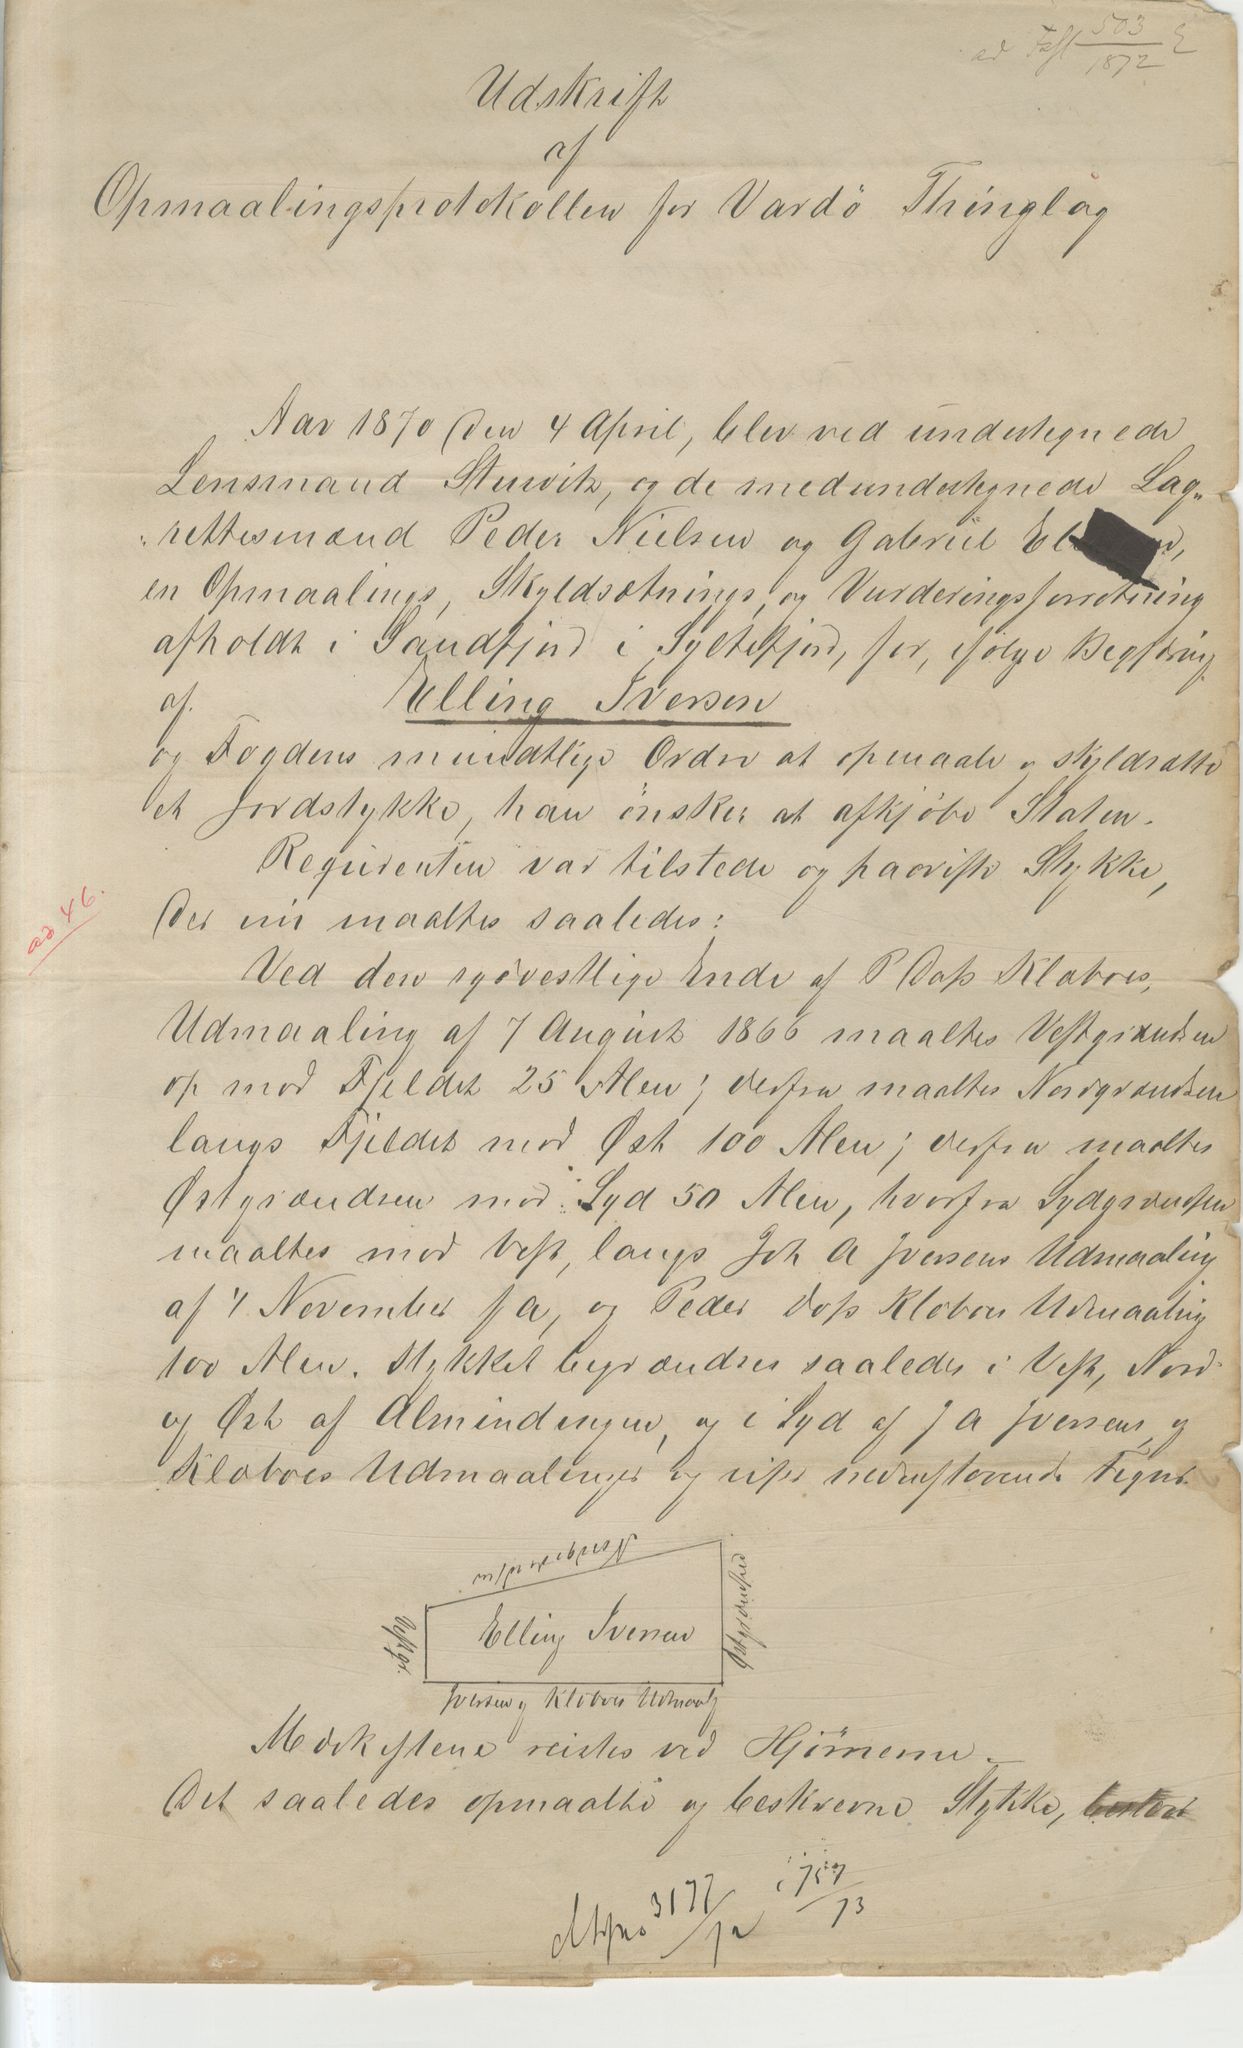 ad 503
1872
Udskrift
af
Opmaalingsprotokollen for Vardö Thinglag
Aar 1870 den 4 April, blev ved undertegnede
Lensmand og de medundertegnede Lag„
„rettesmænd Peder Nielsen og Gabriel
en Opmaalings, Skyldsætnings, og Vurderingsforretning
afholdt i Sandfjord i Syltefjord, for, ifölge Begjæring
af. Elling Iversen
og Fogdens mundtlige Ordre at opmaale og skyldsætte
et Jordstykke, han önsker at afkjöbe Staten.
Requirenten var tilstede og paaviste Stykke,
der nu maaltes saaledes:
Ved den syövestlige Ende af P Dass Kloboes,
Udmaaling af 7 August 1866 maaltes Vestgrændsen
op mod Fjeldet 25 Alen; derfra maaltes Nordgrændsen
langs Fjeldet mod Øst 100 Alen; derfra maaltes
Østgrændsen mod Syd 50 Alen, hvorfra Sydgrændsen
maaltes mod Vest, langs Joh A Iversens Udmaaling
af November f a, og Peder Dass Kloboes Udmaaling
100 Alen. Stykket begrændses saaledes i Vest, Nord
og Øst af Almindingen, og i Syd af J A Iversens og
Kloboes Udmaalinger og viser nedenstaaende Figur.
Nordgrændsen
Vestgr.
Elling Iversen
Østgrændsen
Iversen og Kloboes Udmaalg
Mærkestene reistes ved Hjörnerne.
Det saaledes opmaalte og beskrevne Stykke,
3177
73
ad 46.